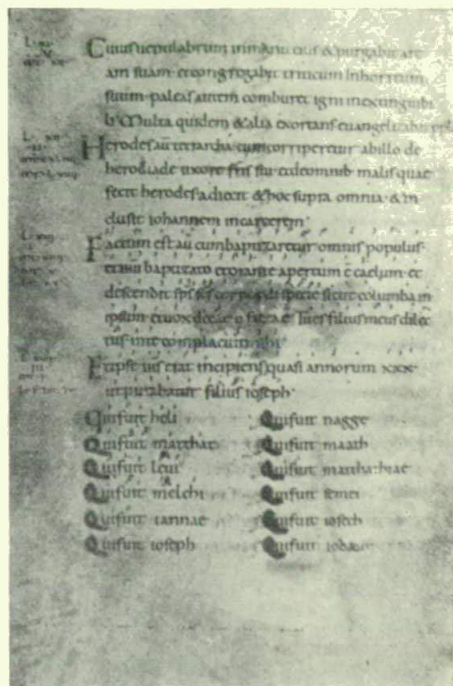 Cuius uentilabrum in manu eius & purgabit are
am suam et congregabit triticum in horreum
suum paleas autem comburet igni inextinguibi
li Multa quidem & alia exortans euangelizabat
Herodes au tetrarcha cum corriperetur ab illo de
herodiade uxore fris sui et de omnib malis quae
fecit herodes adiecit & hoc supra omnia & in
clusit iohannem in carcerem
Factum est au cum baptizaretur omnis populus
et ihu baptizato et orante apertum e caelum et
descendit sps scs corporali specie sicut columba in
ipsum et uox de caelo facta e Tu es filius meus dilec
tus in te complacuit mihi
Et ipse ihs erat incipiens quasi annorum xxx
ut putabatur filius ioseph
Qui fuit heli
Qui fuit matthat
Qui fuit leui
Qui fuit melchi
Qui fuit iannae
Qui fuit ioseph
Qui fuit nagge
Qui fuit maath
Qui fuit matthathiae
Qui fuit semei
Qui fuit iosech
Qui fuit